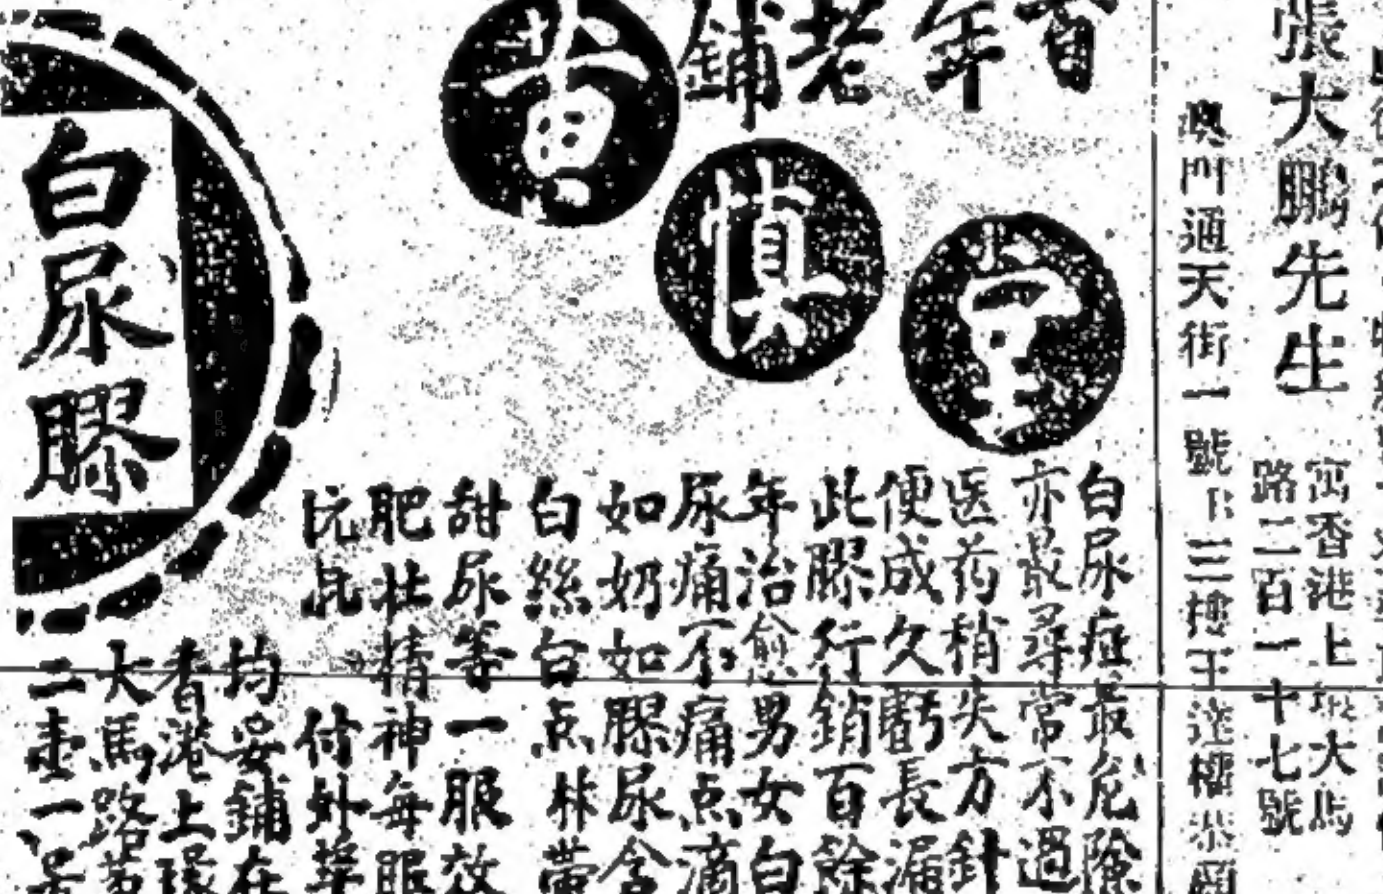 張大鵬先生
寓香港上環大馬
路二百一十七號
澳門通天街一號下三樓王達權恭頌
百年老鋪
黃慎堂
白尿症最危險
亦最尋常不過
医药稍失方針
便成久虧長漏
此膠行銷百餘
年治愈男女白
尿痛不痛点滴
如奶如膠尿含
白絲白点林
甜尿等一服效
肥壮精神每服
付外
均妥鋪在
香港上環
大馬路
二壹一
白尿膠